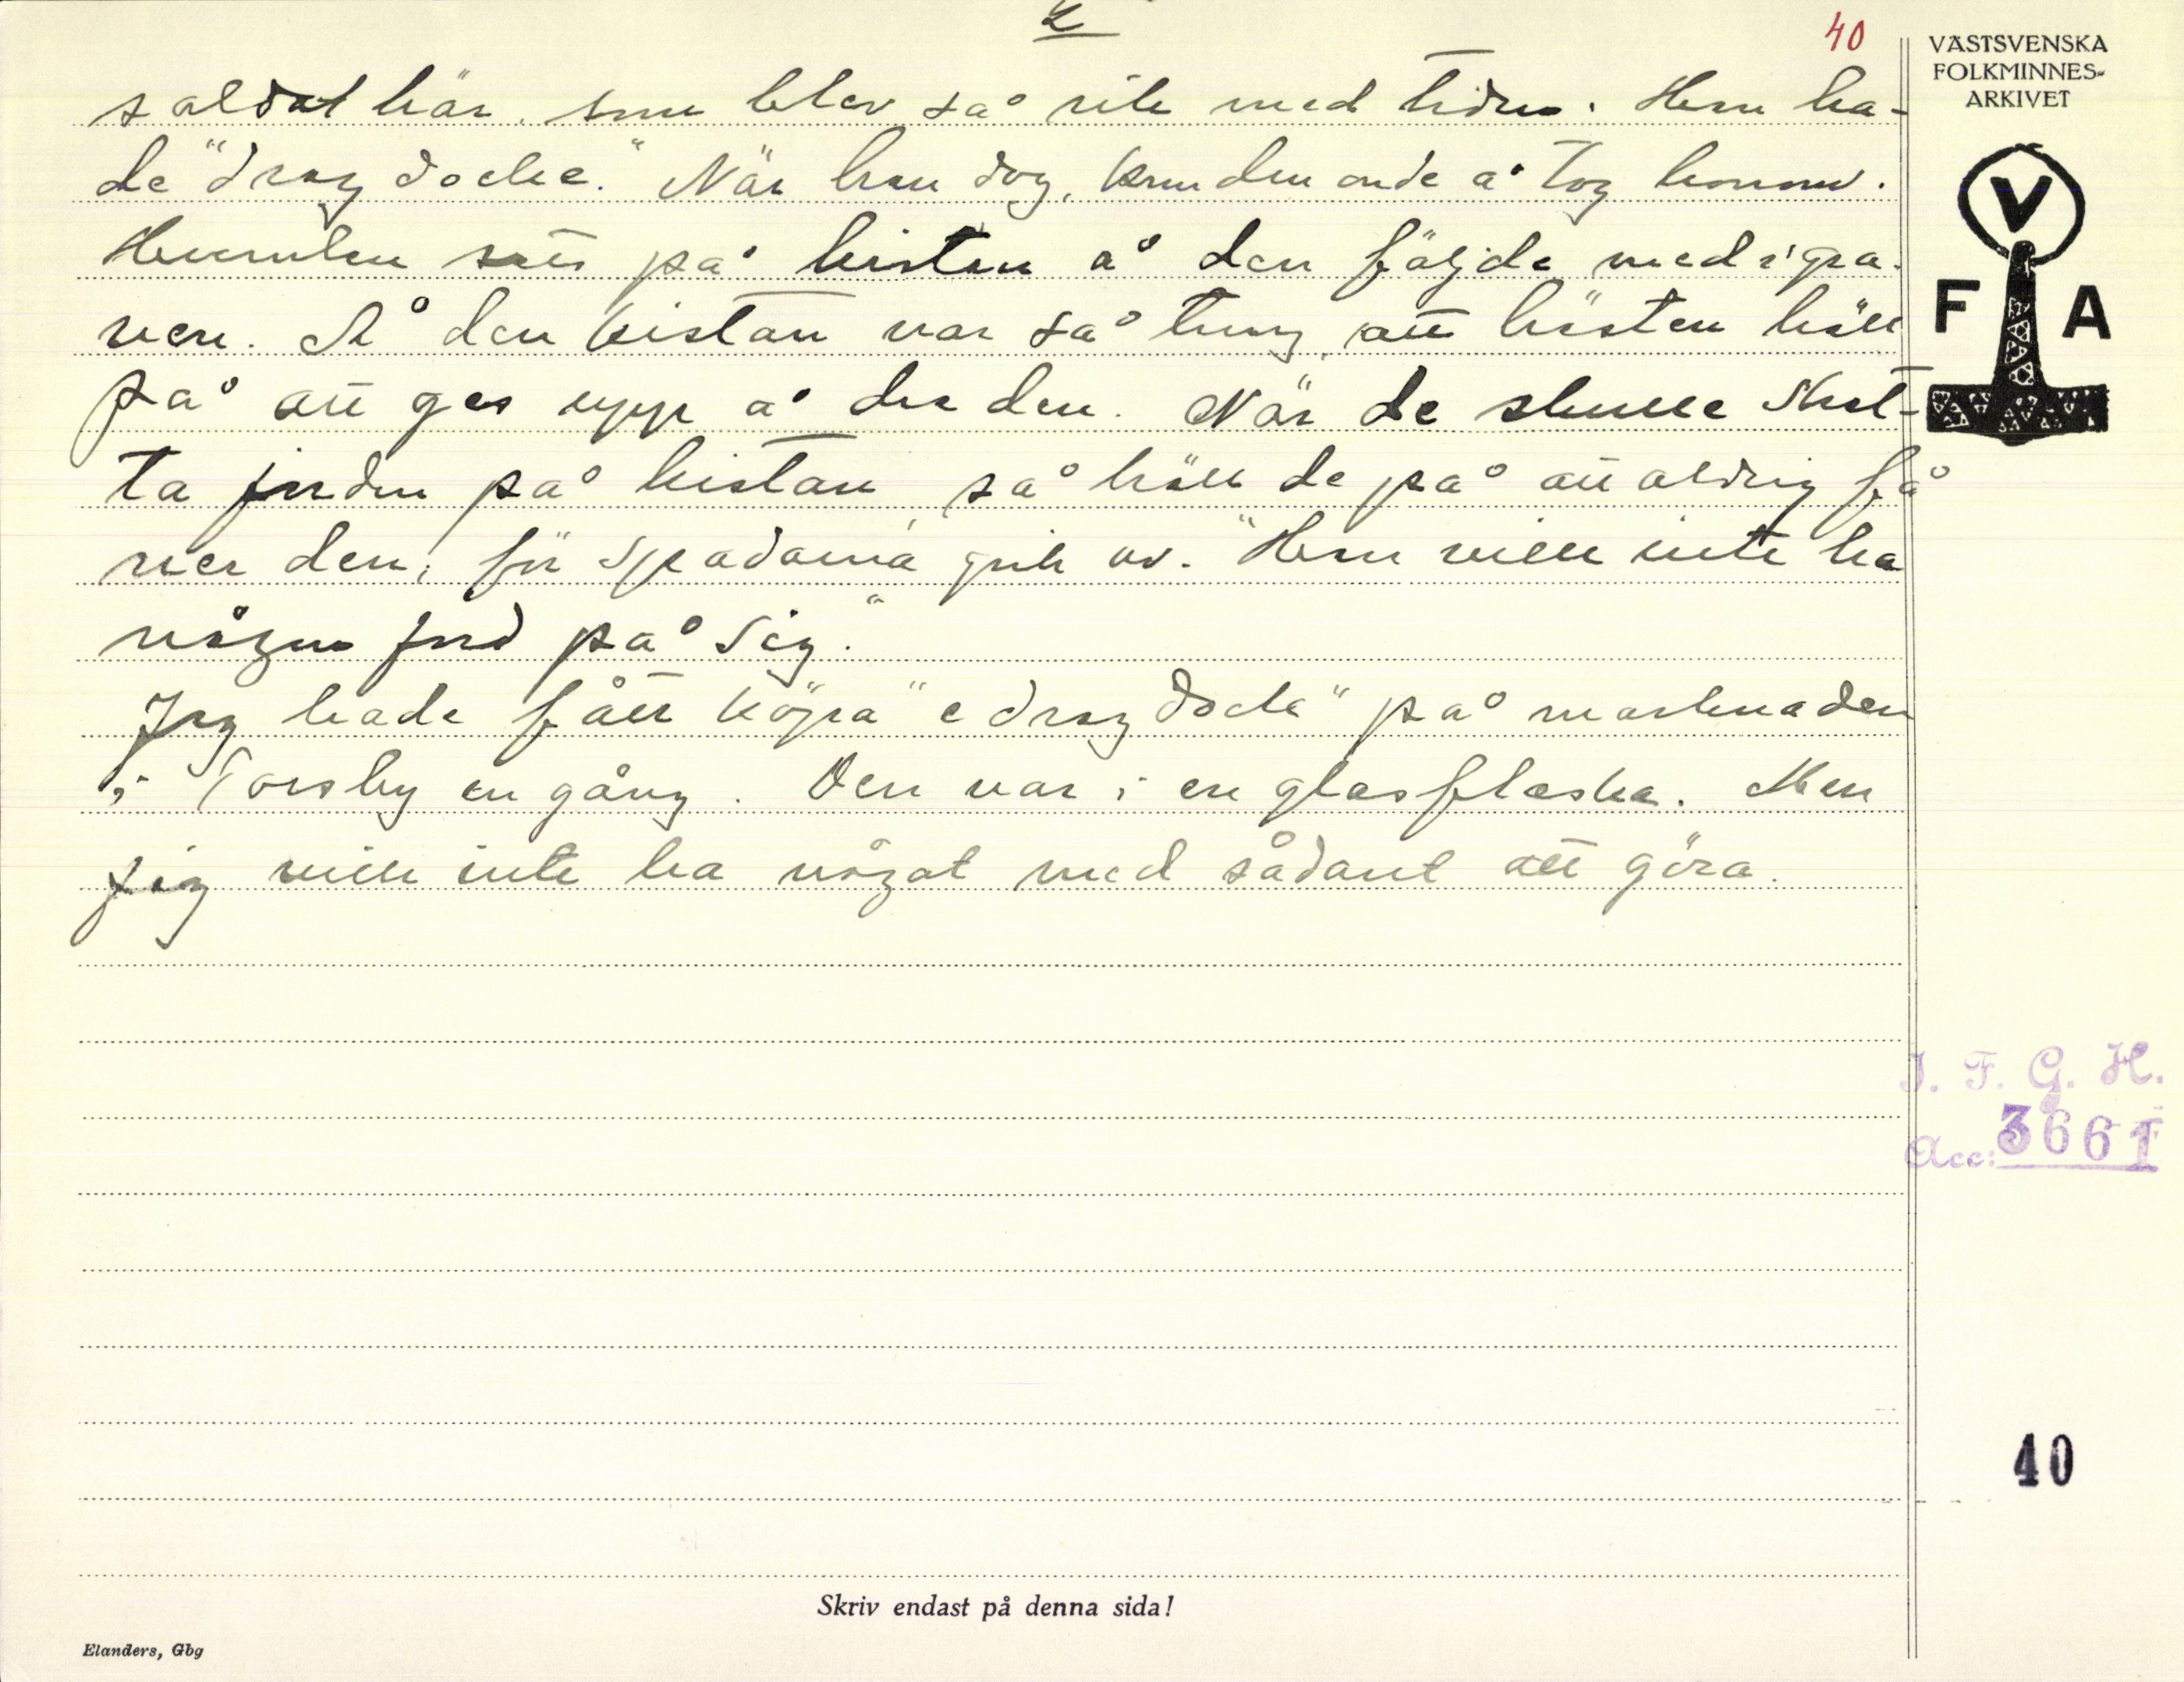 2
40
soldat här, som blev så rik med tiden. Han ha-
de "dragdocke." När han dog, kom den onde å tog honom.
satt på kistan å den följde med i gra-
ven. Å den kistan var så tung, att hästen höll
på att ges upp å den. När de skulle skot-
ta jorden på kistan, så höll de på att aldrig få
ner den, för spadarna gick av. "Han ville inte ha
någon jord på sig."
Jag hade fått köpa "e dragdocka" på marknaden
i Torsby en gång. Den var i en glasflaska. Men
jag ville inte ha något med sådant att göra.
VÄSTSVENSKA
FOLKMINNES-
ARKIVET
V
F A
I. F. G. H.
Acc: 3661
40
Skriv endast på denna sida!
Elanders, Gbg